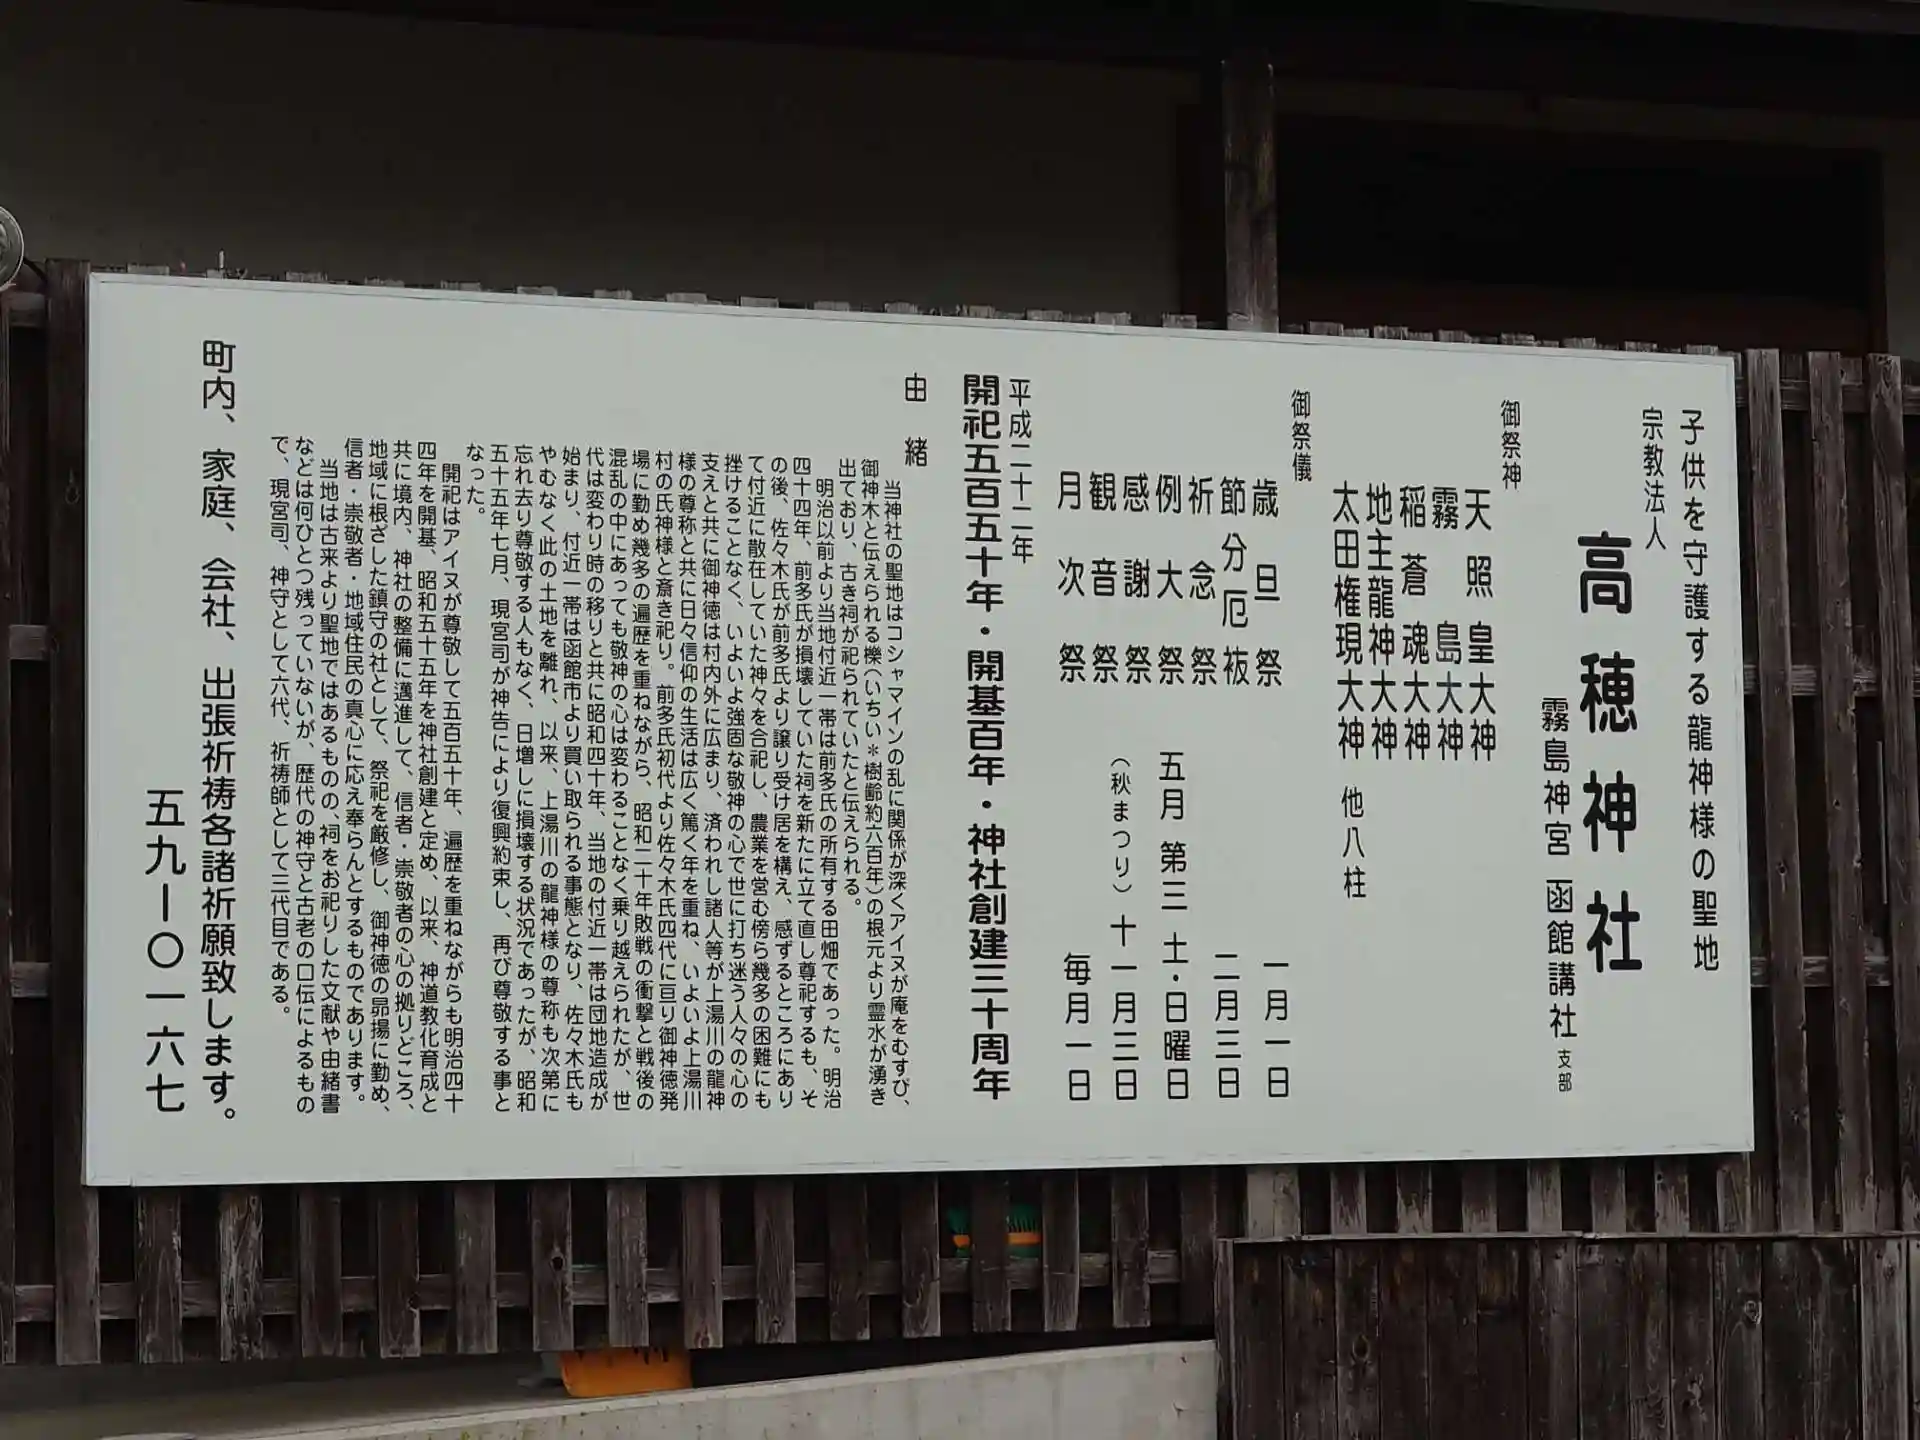 子供を守護する龍神様の聖地
宗教法人
高穂神社
霧島神宮 函館講社 支部
御祭神
天照皇大神
霧島大神
稲蒼魂大神
地主龍神大神
太田権現大神 他八柱
御祭儀
歳旦祭 一月一日
節分厄祓 二月三日
祈念祭
例大祭 五月 第三 土・日曜日
感謝祭 (秋まつり) 十一月三日
観音祭
月次祭 毎月一日
平成二十二年
開祀五百五十年・開基百年・神社創建三十周年
由緒
当神社の聖地はコシャマインの乱に関係が深くアイヌが庵をむすび、
御神木と伝えられる櫟(いちい＊樹齢約六百年)の根元より霊水が湧き
出ており、古き祠が祀られていたと伝えられる。
明治以前より当地付近一帯は前多氏の所有する田畑であった。明治
四十四年、前多氏が損壊していた祠を新たに立て直し尊祀するも、そ
の後、佐々木氏が前多氏より譲り受け居を構え、感ずるところにあり
て付近に散在していた神々を合祀し、農業を営む傍ら幾多の困難にも
挫けることなく、いよいよ強固な敬神の心で世に打ち迷う人々の心の
支えと共に御神徳は村内外に広まり、済われし諸人等が上湯川の龍神
様の尊称と共に日々信仰の生活は広く篤く年を重ね、いよいよ上湯川
村の氏神様と斎き祀り。前多氏初代より佐々木氏四代に亘り御神徳発
場に勤め幾多の遍歴を重ねながら、昭和二十年敗戦の衝撃と戦後の
混乱の中にあっても敬神の心は変わることなく乗り越えられたが、世
代は変わり時の移りと共に昭和四十年、当地の付近一帯は団地造成が
始まり、付近一帯は函館市より買い取られる事態となり、佐々木氏も
やむなく此の土地を離れ、以来、上湯川の龍神様の尊称も次第に
忘れ去り尊敬する人もなく、日増しに損壊する状況であったが、昭和
五十五年七月、現宮司が神告により復興約束し、再び尊敬する事と
なった。
開祀はアイヌが尊敬して五百五十年、遍歴を重ねながらも明治四十
四年を開基、昭和五十五年を神社創建と定め、以来、神道教化育成と
共に境内、神社の整備に邁進して、信者・崇敬者の心の拠りどころ、
地域に根ざした鎮守の社として、祭祀を厳修し、御神徳の昴揚に勤め、
信者・崇敬者・地域住民の真心に応え奉らんとするものであります。
当地は古来より聖地ではあるものの、祠をお祀りした文献や由緒書
などは何ひとつ残っていないが、歴代の神守と古老の口伝によるもの
で、現宮司、神守として六代、祈祷師として三代目である。
町内、家庭、会社、出張祈祷各諸祈願致します。
五九ー〇一六七